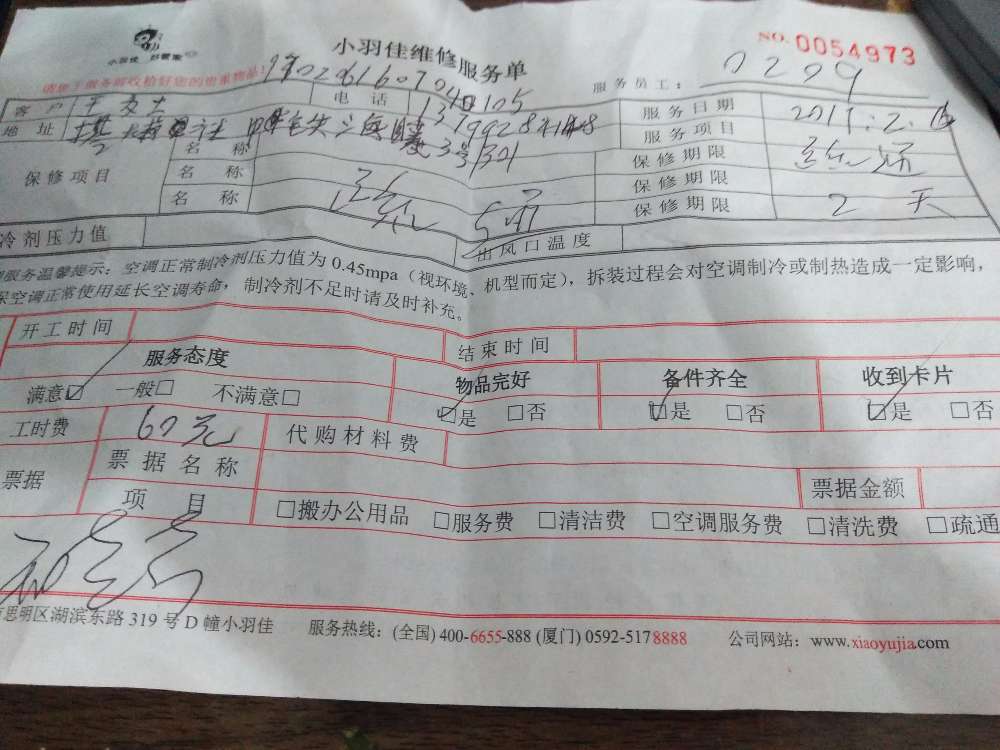 小羽佳 好管家
小羽佳维修服务单
NO. 0054973
请您于服务前收检好您的贵重物品!
服务员工: 0209
客户 电话 服务日期
地址 服务项目
保修项目 名称 保修期限
名称 保修期限
名称 保修期限 2 天
冷剂压力值 出风口温度
服务温馨提示: 空调正常制冷剂压力值为 0.45mpa(视环境、机型而定),拆装过程会对空调制冷或制热造成一定影响,
保空调正常使用延长空调寿命,制冷剂不足时请及时补充。
开工时间 结束时间
服务态度 物品完好 备件齐全 收到卡片
满意☑ 一般□ 不满意□ ☑是 □否 ☑是 □否 ☑是 □否
工时费 60元 代购材料费
票据 票据名称 票据金额
项目 □搬办公用品 □服务费 □清洁费 □空调服务费 □清洗费 □疏通
思明区湖滨东路 319 号 D 幢小羽佳 服务热线: (全国) 400-6655-888 (厦门) 0592-5178888 公司网站: www.xiaoyujia.com